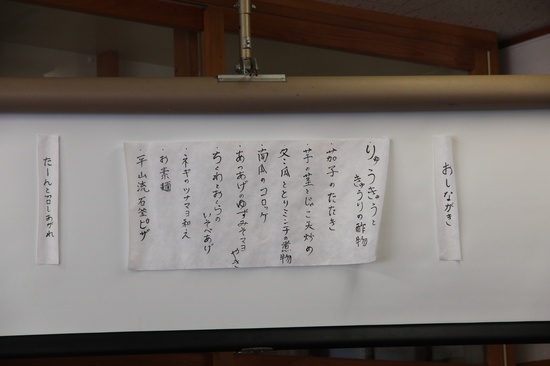 おしながき
りゅうきゅうと
きゅうりの酢物
・茄子のたたき
・芋の茎とじゃこ天炒め
・冬瓜ととりミンチの煮物
・南瓜のコロッケ
・あつあげのゆずみそマヨ
やき
・ちくわとおくらの
いそべあげ
・ネギのツナマヨ和え
・お素麺
・平山流石釜ピザ
たーんと召しあがれ